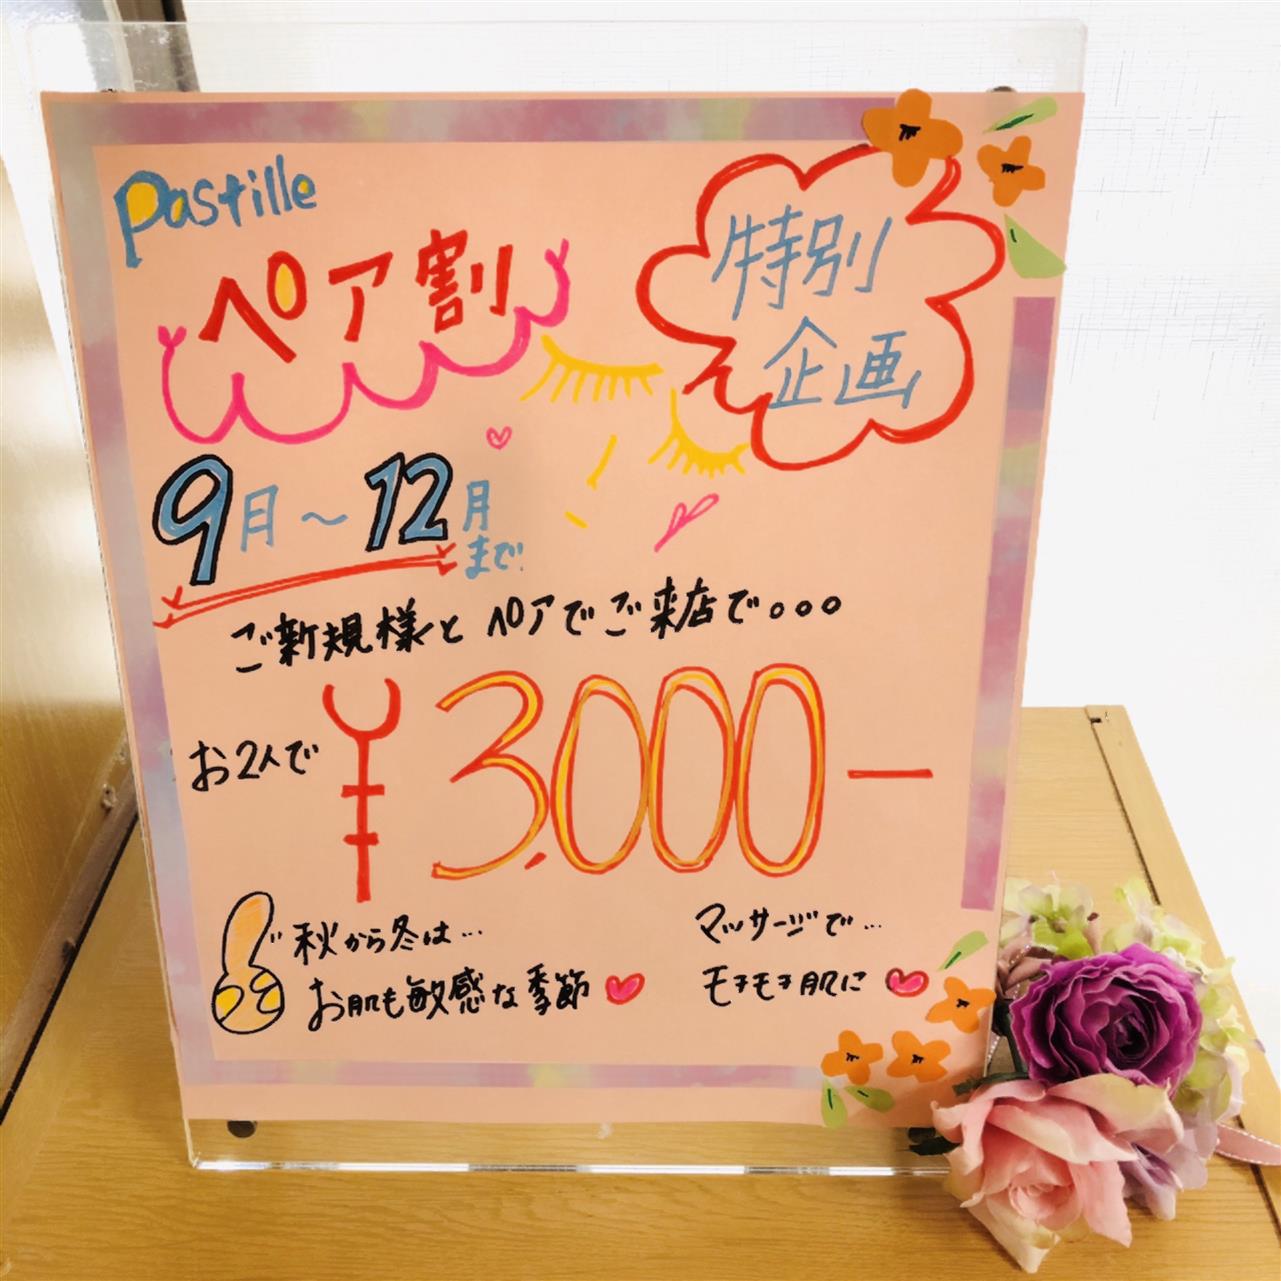 Pastille
ペア割
特別
企画
9月～12月
まで
ご新規様とペアでご来店で。。。
お2人で ¥3,000ー
秋から冬は…
お肌も敏感な季節
マッサージで…
モチモチ肌に